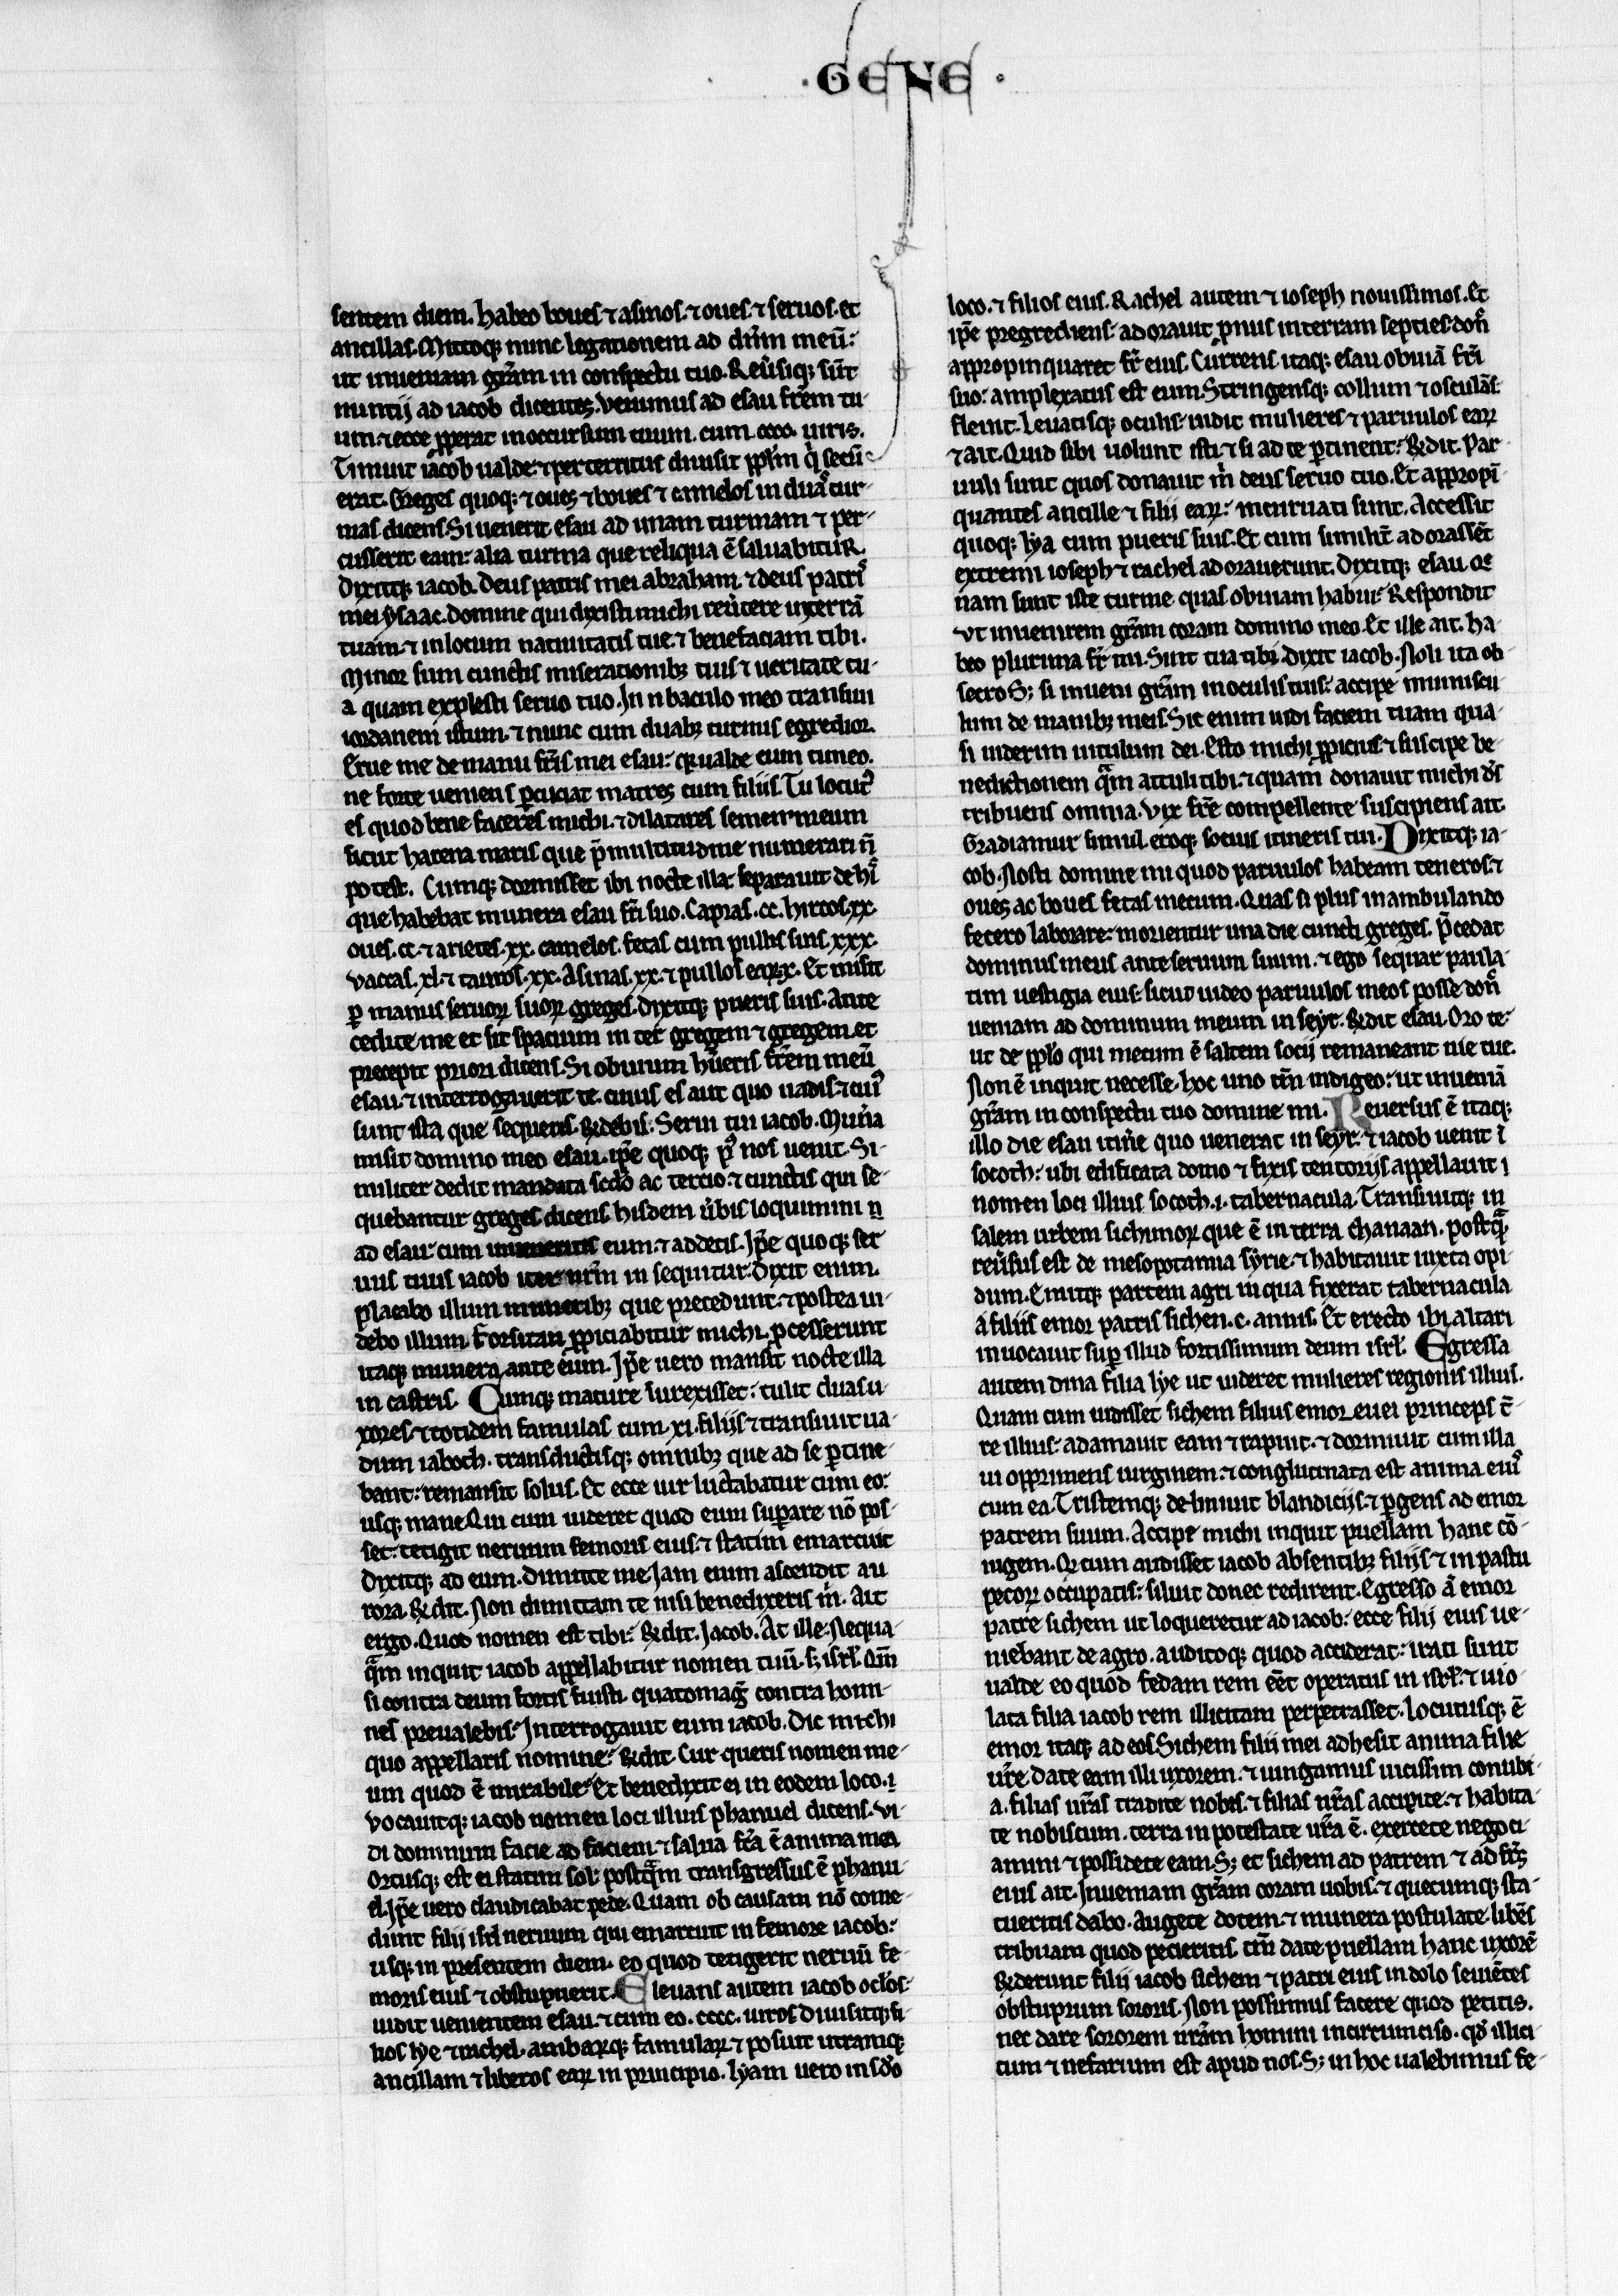 · GENE ·
sentem diem. habeo boues ⁊ asinos. ⁊ oues. ⁊ seruos. et
ancillas. Mittoqꝫ nunc legationem ad dn̄m meū:
ut inueniam gr̄am in conspectu tuo. Reūsiqꝫ sūt
nuntij ad iacob dicentes. venimus ad esau fr̄em tu-
um. ⁊ ecce ꝓperat in occursum tuum. cum .cccc. uiris.
Timuit iacob ualde. ⁊ perterritus diuisit ppl̄m q̇ secū
erat. Greges quoqꝫ ⁊ oues ⁊ boues ⁊ camelos in duas tur-
mas dicens. Si uenerit esau ad unam turmam ⁊ per-
cusserit eam: alia turma que reliqua ē saluabitur.
Dixitqꝫ iacob. Deus patris mei abraham. ⁊ deus patrꝰ
mei ysaac. domine qui dixisti michi reūtere in terrā
tuam. ⁊ in locum natiuitatis tue. ⁊ benefaciam tibi.
Minor sum cunctis miserationibꝫ tuis ⁊ ueritate tu-
a quam explesti seruo tuo. In baculo meo transiui
iordanem istum. ⁊ nunc cum duabꝫ turmis egredior.
Erue me de manu fr̄is mei esau: qꝛ ualde eum timeo.
ne forte ueniens ꝑcuciat matres cum filiis. Tu locutꝰ
es quod bene faceres michi. ⁊ dilatares semen meum
sicut harena maris que p̄ multitudine numerari n̄
potest. Cumqꝫ dormisset ibi nocte illa: separauit de hiꝰ
que habebat munera esau fr̄i suo. Capras .cc. hircos .xx.
oues .cc. ⁊ arietes .xx. camelos fetas cum pullis suis .xxx.
vaccas .xl. ⁊ tauros .xx. Asinas .xx. ⁊ pullos eaꝝ .x. Et misit
ꝑ manus seruoꝝ suoꝝ greges. Dixitqꝫ pueris suis. Ante
cedite me et sit spacium inter gregem ⁊ gregem. et
precepit priori dicens. Si obuium hūeris fr̄em meū
esau. ⁊ interrogauerit te. cuius es aut quo uadis. ⁊ cuiꝰ
sunt ista que sequeris. Rn̄debis. Serui tui iacob. Mun̄a
misit domino meo esau. ip̄e quoqꝫ pꝰ nos uenit. Si-
militer dedit mandata scd̄o ac tercio. ⁊ cunctis qui se-
quebantur greges dicens. hisdem ūbis loquimini
ad esau cum inueneritis eum. ⁊ addetis. Ip̄e quoqꝫ ser
uus tuus iacob iter nr̄m in sequitur. Dixit enim.
placabo illum muneribꝫ que precedunt. ⁊ postea ui-
debo illum. Forsitan ꝓpiciabitur michi. ꝓcesserunt
itaqꝫ munera ante eum. Ip̄e uero mansit nocte illa
in castris. Cumqꝫ mature surexisset: tulit duas u-
xores. ⁊ totidem famulas cum .xi. filijs ⁊ transiuit ua-
dum iaboch. transductisqꝫ omnibꝫ que ad se ꝑtine-
bant: remansit solus. Et ecce uir luctabatur cum eo:
usqꝫ mane. Qui cum uideret quod eum suꝑare nō pos-
set: tetigit neruum femoris eius. ⁊ statim emarcuit
Dixitqꝫ ad eum. Dimitte me. Iam enim ascendit au
rora. Rn̄dit. Non dimittam te nisi benedixeris m̄. Ait
ergo. Quod nomen est tibi: Rn̄dit. Iacob. At ille. Nequa-
q̄m inquit iacob appellabitur nomen tuū. sꝫ isrl̄. Qm̄
si contra deum fortis fuisti. quatomag̃ contra homi-
nes preualebis: Interrogauit eum iacob. Dic michi
quo appellaris nomine: Rn̄dit. Cur queris nomen me-
um quod ē mirabile: Et benedixit ei in eodem loco.
vocauitqꝫ iacob nomen loci illius phanuel dicens. Vi-
di dominum facie ad faciem. ⁊ salua fc̄a ē anima mea
Ortusqꝫ est ei statim sol: postq̄m transgressus ē phanu
el. Ip̄e uero claudicabat pede. Quam ob causam nō come-
dunt filij isrl̄ neruum qui emarcuit in femore iacob:
usqꝫ in presentem diem. eo quod tetigerit neruū fe-
moris eius ⁊ obstupuerit. Eleuans autem iacob ocl̄os-
uidit uenientem esau. ⁊ cum eo .cccc. uiros. Diuisitqꝫ fi
lios lye ⁊ rachel. ambarꝫqꝫ famulaꝝ ⁊ posuit utramqꝫ
ancillam ⁊ liberos eaꝝ in principio. lyam uero in sc̄do
loco. ⁊ filios eius. Rachel autem ⁊ ioseph nouissimos. Et
ip̄e pregrediens. adorauit pronus in terram septies. don̄
appropinquaret fr̄ eius. Currens itaqꝫ esau obuiā fr̄i
suo: amplexatus est eum. Stringensqꝫ collum ⁊ osculās.
fleuit. Leuatisqꝫ oculis. uidit mulieres ⁊ paruulos eaꝝ
⁊ ait. Quid sibi uolunt isti. ⁊ si ad te ꝑtinent: Rn̄dit. Par
uuli sunt quos donauit m̄ deus seruo tuo. Et appropī
quantes ancille ⁊ filij eaꝝ: incuruati sunt. Accessit
quoqꝫ lya cum pueris suis. Et cum similit̄ adorassēt
extremi ioseph ⁊ rachel adorauerunt. Dixitqꝫ esau. Qe
nam sunt iste turme quas obuiam habui: Respondit
Vt inuenirem gr̄am coram domino meo. Et ille ait. ha-
beo plurima fr̄ mi. Sint tua tibi. Dixit iacob. Noli ita ob-
secro. Sꝫ si inueni gr̄am in oculis tuis: accipe muniscu
lum de manibꝫ meis. Sic enim uidi faciem tuam qua-
si uiderim uultum dei. Esto michi ꝓpicius. ⁊ suscipe be-
nedictionem q̄m attuli tibi. ⁊ quam donauit michi ds̄
tribuens omnia. Vix fr̄e compellente suscipiens ait.
Gradiamur simul. eroqꝫ socius itineris tui. Dixitqꝫ ia-
cob. Nosti domine mi quod paruulos habeam teneros. ⁊
oues ac boues fetas mecum. Quas si plus in ambulando
fecero laborare: morientur una die cuncti greges. p̄cedat
dominus meus ante seruum suum. ⁊ ego sequar paula-
tim uestigia eius. sicut uideo paruulos meos posse don̄
ueniam ad dominum meum in seyr. Rn̄dit esau. Oro te:
ut de ppl̄o qui mecum ē saltem socij remaneant uie tue.
Non ē inquit necesse. hoc uno tm̄ indigeo: ut inueniā
gr̄am in conspectu tuo domine mi. Reuersus ē itaqꝫ
illo die esau itin̄e quo uenerat in seyr. ⁊ iacob uenit ī
socoth: ubi edificata domo ⁊ fixis tentorijs appellauit
nomen loci illius socoth .i. tabernacula. Transiuitqꝫ in
salem urbem sichimoꝝ que ē in terra chanaan. postq̄
reūsus est de mesopotamia syrie. ⁊ habitauit iuxta opi-
dum. Emitqꝫ partem agri in qua fixerat tabernacula
a filiis emor patris sichen .c. annis. Et erecto ibi altari
inuocauit suꝑ illud fortissimum deum isrl̄. Egressa
autem dina filia lye ut uideret mulieres regionis illius.
Quam cum uidisset sichem filius emor euei princeps t̄-
re illius: adamauit eam ⁊ rapuit. ⁊ dormiuit cum illa
ui opprimens uirginem. ⁊ conglutinata est anima eiꝰ
cum ea. Tristemqꝫ deliniuit blandicijs. ⁊ ꝑgens ad emor
patrem suum. Accipe michi inquit puellam hanc cō-
iugem. Qꝛ cum audisset iacob absentibꝫ filijs. ⁊ in pastu
pecoꝝ occupatis: siluit donec redirent. Egresso ā emor
patre sichem ut loqueretur ad iacob: ecce filij eius ue-
niebant de agro. auditoqꝫ quod acciderat: irati sunt
ualde eo quod fedam rem eēt operatus in isrl̄. ⁊ uio-
lata filia iacob rem illicitam perpetrasset. Locutusqꝫ ē
emor itaqꝫ ad eos. Sichem filii mei adhesit anima filie
ur̄e. Date eam illi uxorem. ⁊ iungamus uicissim conubi-
a. filias ur̄as tradite nobis. ⁊ filias nr̄as accipite. ⁊ habita-
te nobiscum. terra in potestate ur̄a ē. exercete negoci-
amini ⁊ possidete eam. Sꝫ et sichem ad patrem ⁊ ad fr̄es
eius ait. Inueniam gr̄am coram uobis. ⁊ quecumqꝫ sta-
tueritis dabo. Augete dotem. ⁊ munera postulate. libēs
tribuam quod pecieritis. tm̄ date puellam hanc uxorē
Rn̄derunt filij iacob sichem ⁊ patri eius in dolo seuiētes
ob stuprum sororis. Non possumus facere quod petitis.
nec dare sororem nr̄am homini incircumciso. qd̄ illici-
tum ⁊ nefarium est apud nos. Sꝫ in hoc ualebimus fe-